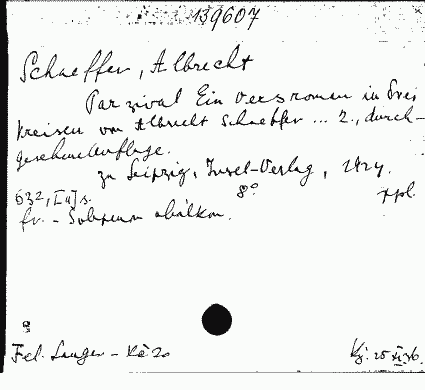 139607
Schaeffer, Albrecht
Parzival Ein Versroman in drei
Kreisen von Albrecht Schaeffer ... 2., durch-
gesehene Auflage.
zu Leipzig, Insel-Verlag, 1924.
632, [II] s. 8°
fv. -
Fel. Langer - Kč 20